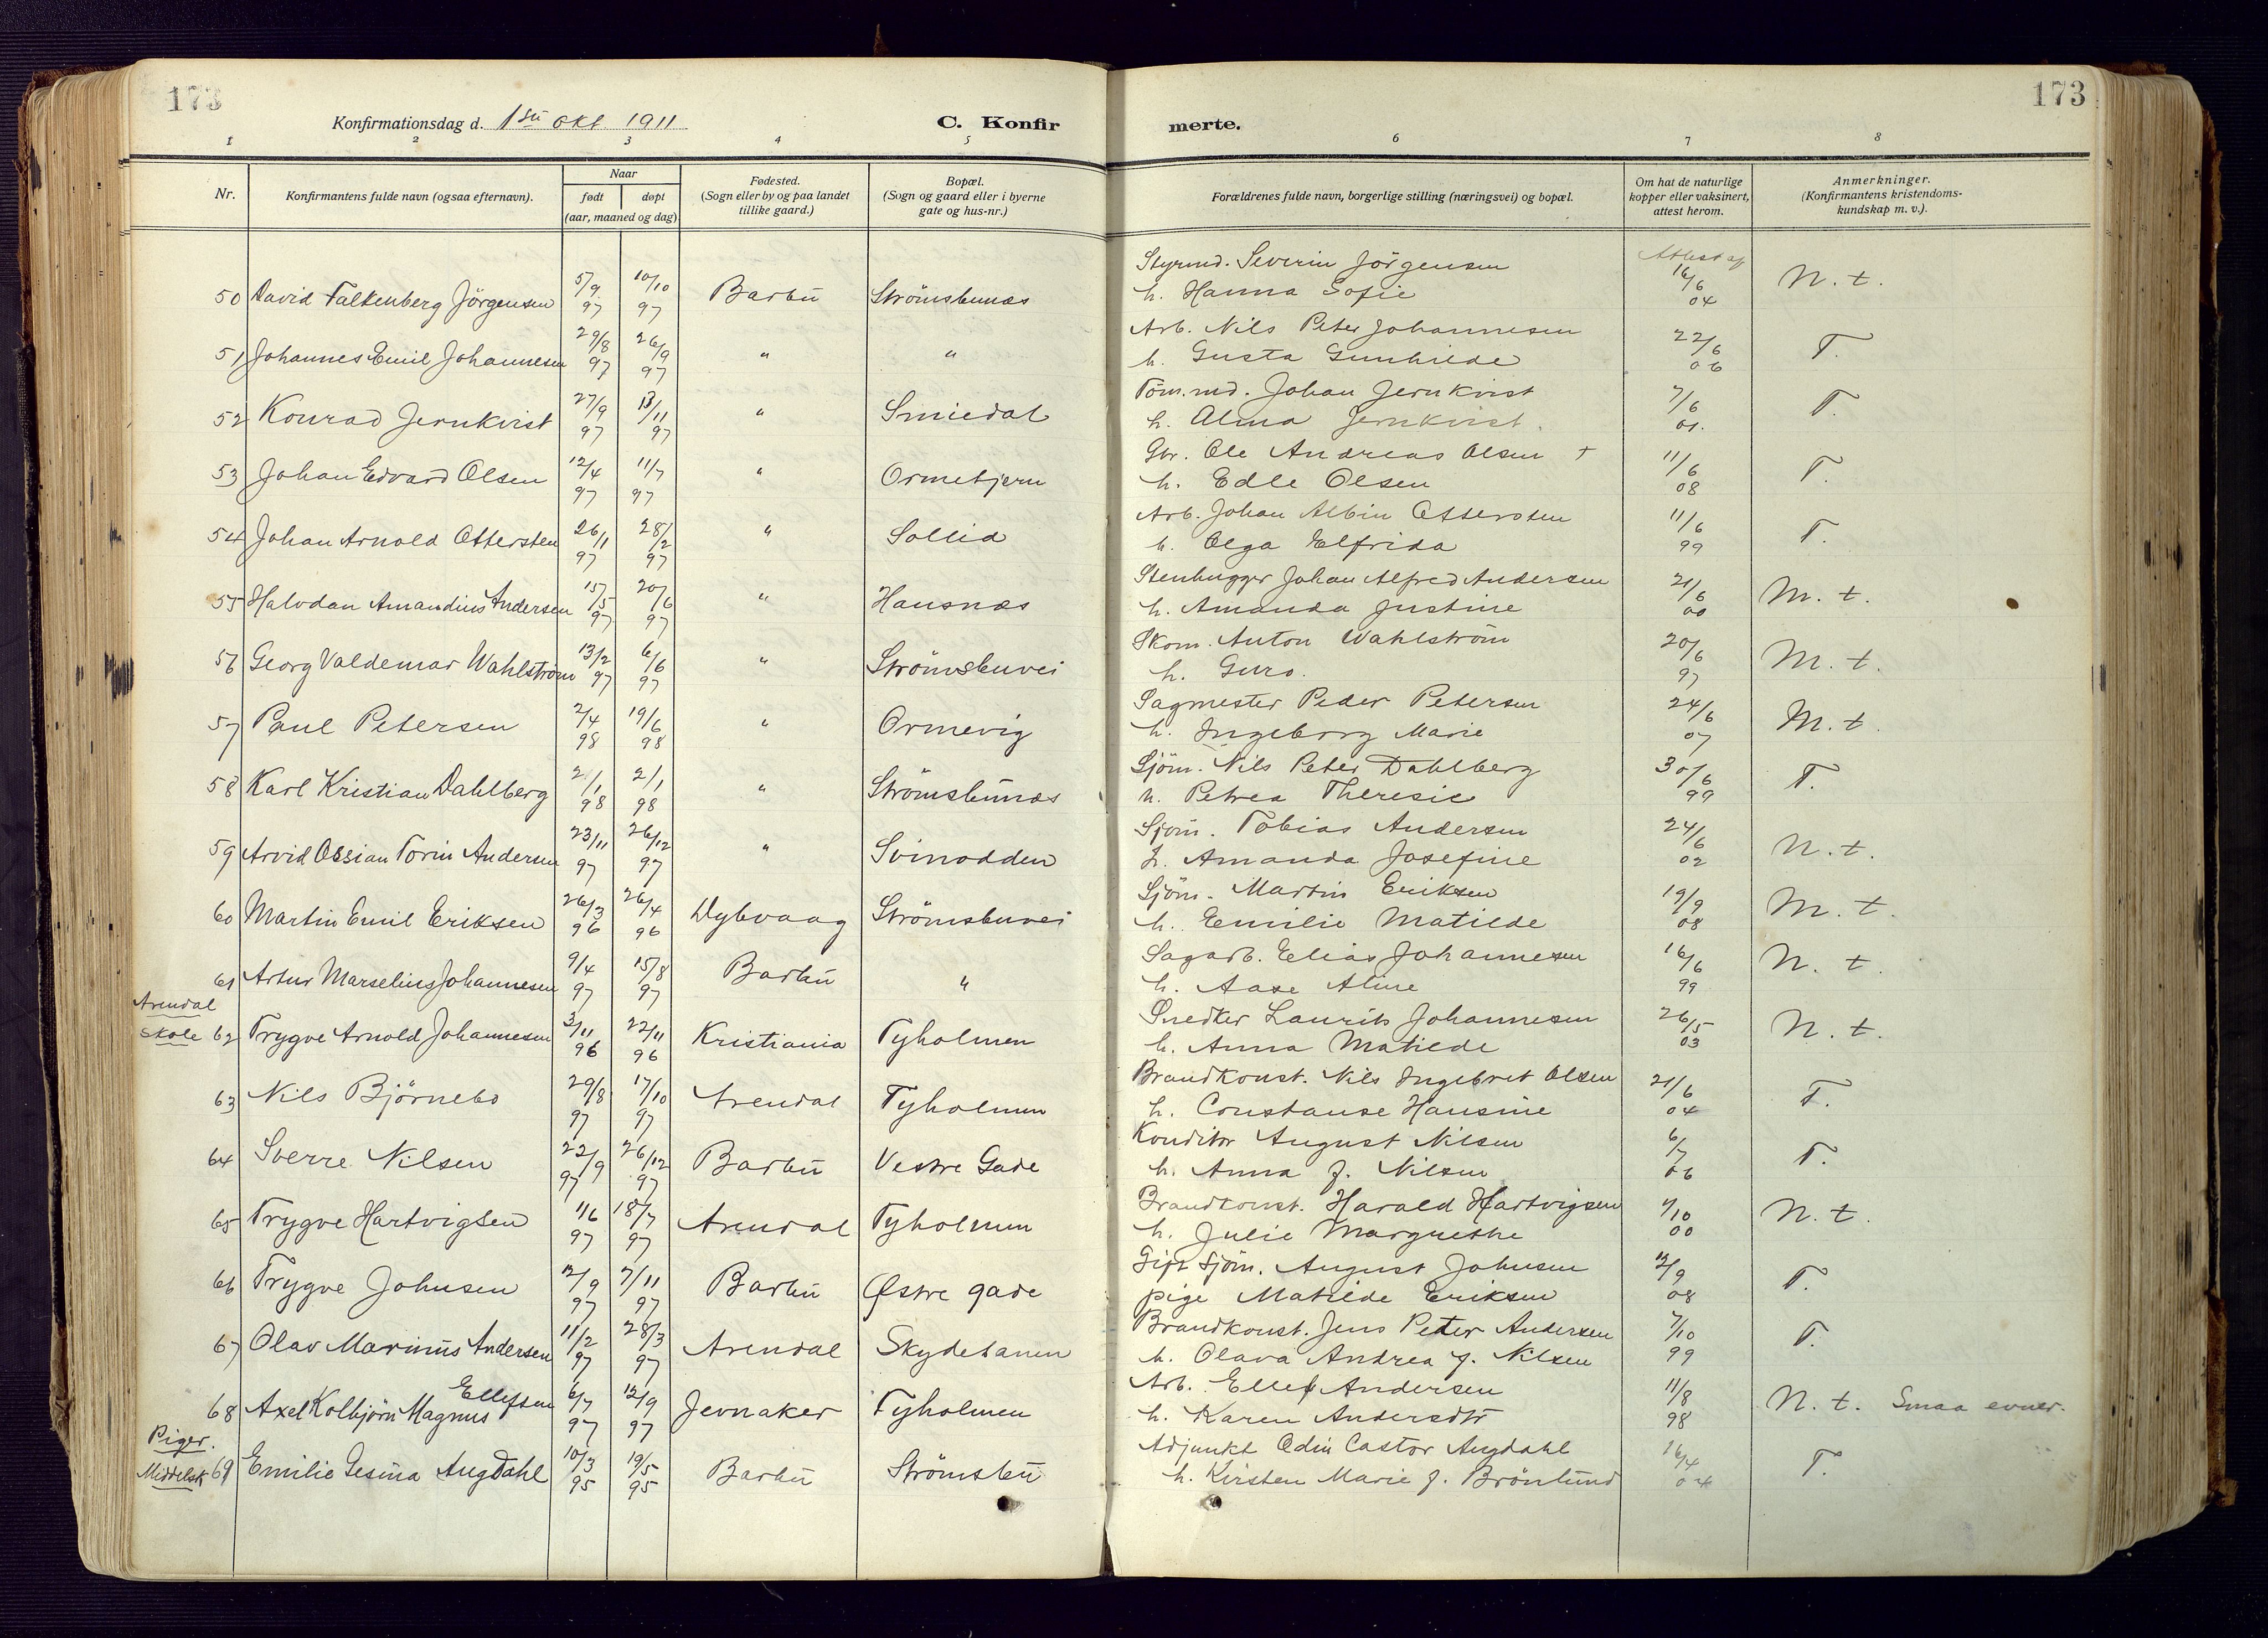 173
173
Konfirmationsdag d. 1ste okt 1911
C. Konfir merte.
1 2 3 4 5 6 7 8
Nr. Konfirmantens fulde navn (ogsaa efternavn). Naar født døpt (aar, maaned og dag) Fødested. (Sogn eller by og paa landet tillike gaard.) Bopæl. (Sogn og gaard eller i byerne gate og hus-nr.) Forældrenes fulde navn, borgerlige stilling (næringsvei) og bopæl. Om hat de naturlige kopper eller vaksinert, attest herom. Anmerkninger. (Konfirmantens kristendoms-kundskap m. v.).
50 David Falkenberg Jörgensen 5/9 97 10/10 97 Barbu Strömsbunæs Styrmd. Severin Jörgensen h. Hanna Sofie Attest af 16/6 04 N. t.
51 Johannes Emil Johannesen 29/8 97 26/9 97 " " Arb. Nils Peter Johannesen h. Gusta Gunhilde 22/6 06 T.
52 Konrad Jernkvist 27/9 97 13/11 97 " Smiedal Töm.md. Johan Jernkvist h. Alma Jernkvist. 7/6 01. T.
53 Johan Edvard Olsen 12/4 97 11/7 97 " Ormetjern Gbr. Ole Andreas Olsen † h. Edle Olsen 11/6 08 T.
54 Johan Arnold Ottersten 26/1 97 28/2 97 " Sollid Arb. Johan Albin Ottersten h. Olga Elfrida 11/6 99 T.
55 Halvdan Amandius Andersen 15/5 97 20/6 97 " Hausnæs Stenhugger Johan Alfred Andersen h. Amanda Justine 21/6 00 M. t.
56 Georg Valdemar Wahlström 13/2 97 6/6 97 " Strömsbuvei Skom. Anton Wahlström h. Guro. 20/6 97 M. t.
57 Paul Petersen 2/4 98 19/6 98 " Ormevig Sagmester Peder Petersen h. Ingeborg Marie 24/6 07 M. t.
58 Karl Kristian Dahlberg 2/1 98 2/1 98 " Strömsbunæs Sjöm. Nils Peter Dahlberg h. Petrea Theresie 30/6 99 T.
59 Arvid Ossian Torin Andersen 23/11 97 26/12 97 " Svinodden Sjöm. Tobias Andersen h. Amanda Josefine 24/6 02 N. t.
60 Martin Emil Eriksen 26/3 96 26/4 96 Dybvaag Strömsbuvei Sjöm. Martin Eriksen h. Emilie Matilde 19/9 08 M. t.
61 Artur Marselius Johannesen 9/4 97 15/8 97 Barbu " Sagarb. Elias Johannesen h. Aase Aline 16/6 99 N. t.
Arendal Skole 62 Trygve Arnold Johannesen 3/11 96 22/11 96 Kristiania Tyholmen Snedker Laurits Johannesen h. Anna Matilde 26/5 03 N. t.
63 Nils Björnebo 29/8 97 17/10 97 Arendal Tyholmen Brandkonst. Nils Ingebret Olsen h. Constanse Hansine 21/6 04 T.
64 Sverre Nilsen 22/9 97 26/12 97 Barbu Vestre Gade Konditor August Nilsen h. Anna f. Nilsen 6/7 06 T.
65 Trygve Hartvigsen 1/6 97 18/7 97 Arendal Tyholmen Brandkonst. Harald Hartvigsen h. Julie Margrethe 7/10 00 N. t.
66 Trygve Johnsen 12/9 97 7/11 97 Barbu Østre gade Gift Sjöm. August Johnsen pige Matilde Eriksen 12/9 08 T.
67 Olav Marinus Andersen 11/2 97 28/3 97 Arendal Skydebanen Brandkonst. Jens Peter Andersen h. Olava Andrea f. Nilsen 7/10 99 T.
68 Axel Kolbjörn Magnus Ellefsen 6/7 97 12/9 97 Jevnaker Tyholmen Arb. Ellef Andersen h. Karen Andersdtr 11/8 98 N. t. Smaa evner.
Piger. Middelsk 69 Emilie Gesina Augdahl 10/3 95 19/5 95 Barbu Strömsbu Adjunkt Odin Castor Augdahl h. Kirsten Marie f. Brönlund 16/4 04 T.